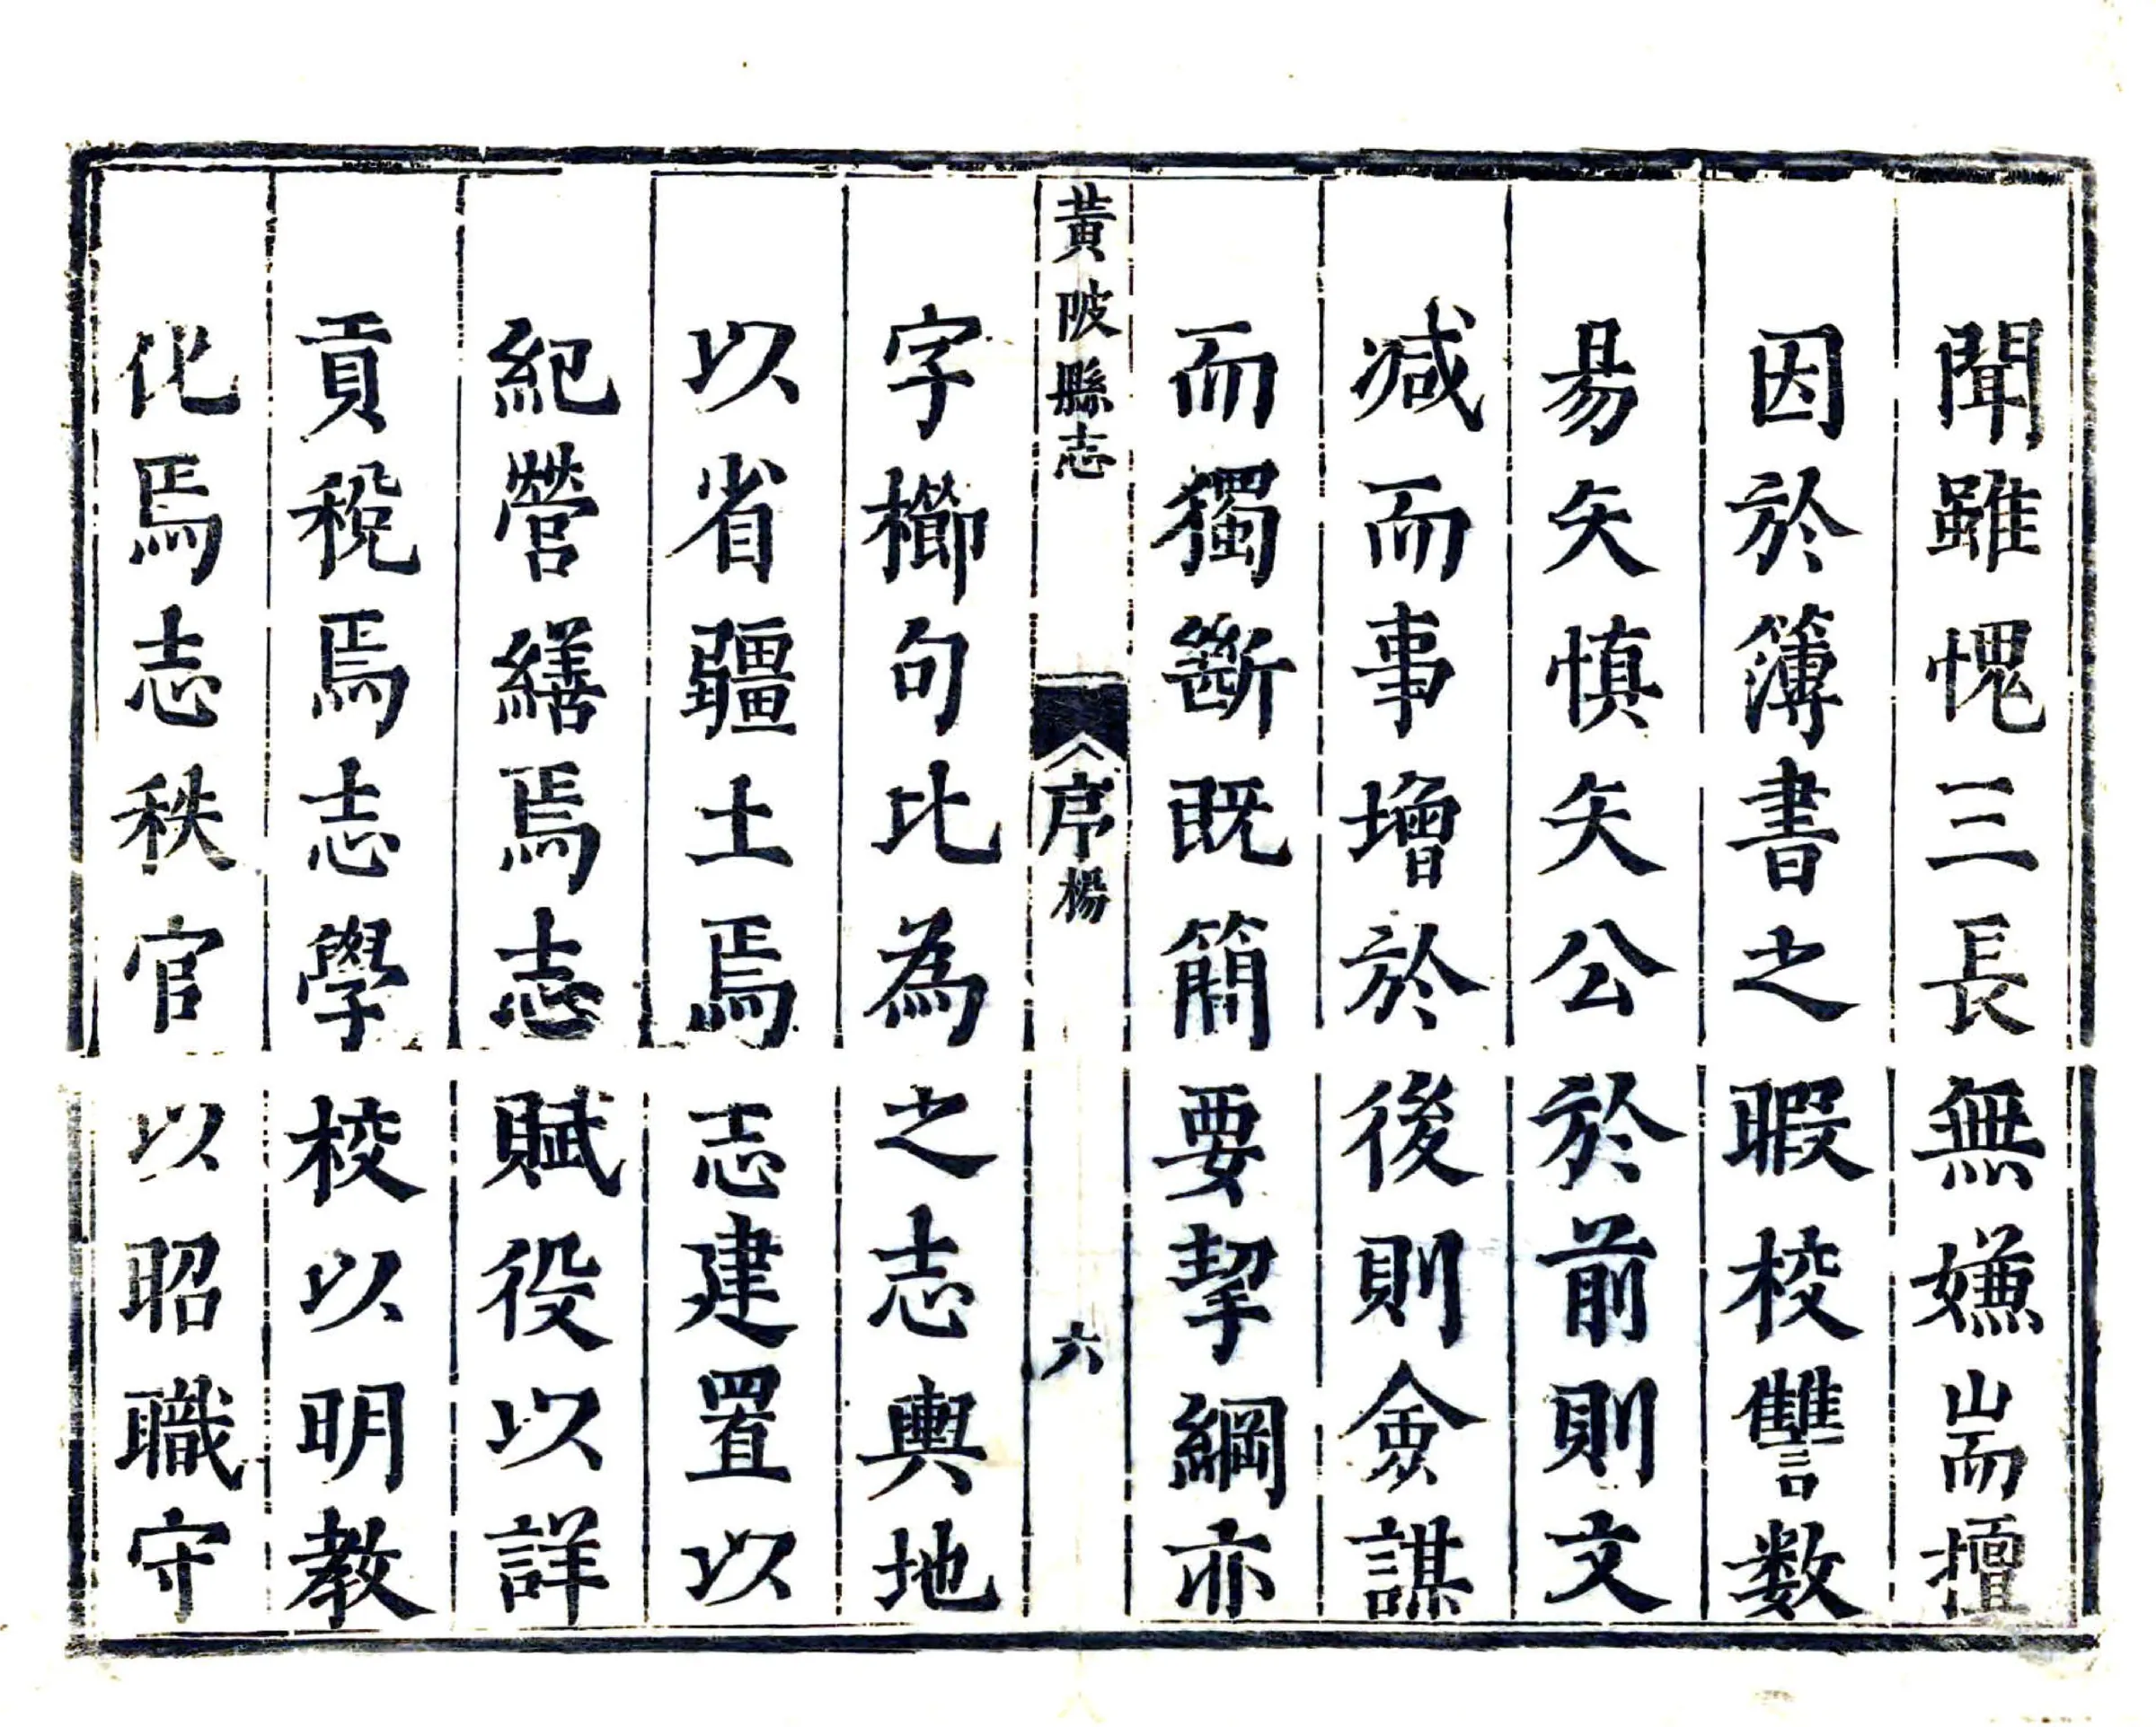 聞雖愧三長無嫌耑擅
因於簿書之暇校讐数
昜矢慎矢公於前則文
减而事增於後則僉謀
而獨斷既簡要挈綱亦
黃陂縣志 序 楊 六
字櫛句比為之志輿地
以省疆土焉志建置以
紀營繕焉志賦役以詳
貢稅焉志學校以明教
化焉志秩官以昭職守